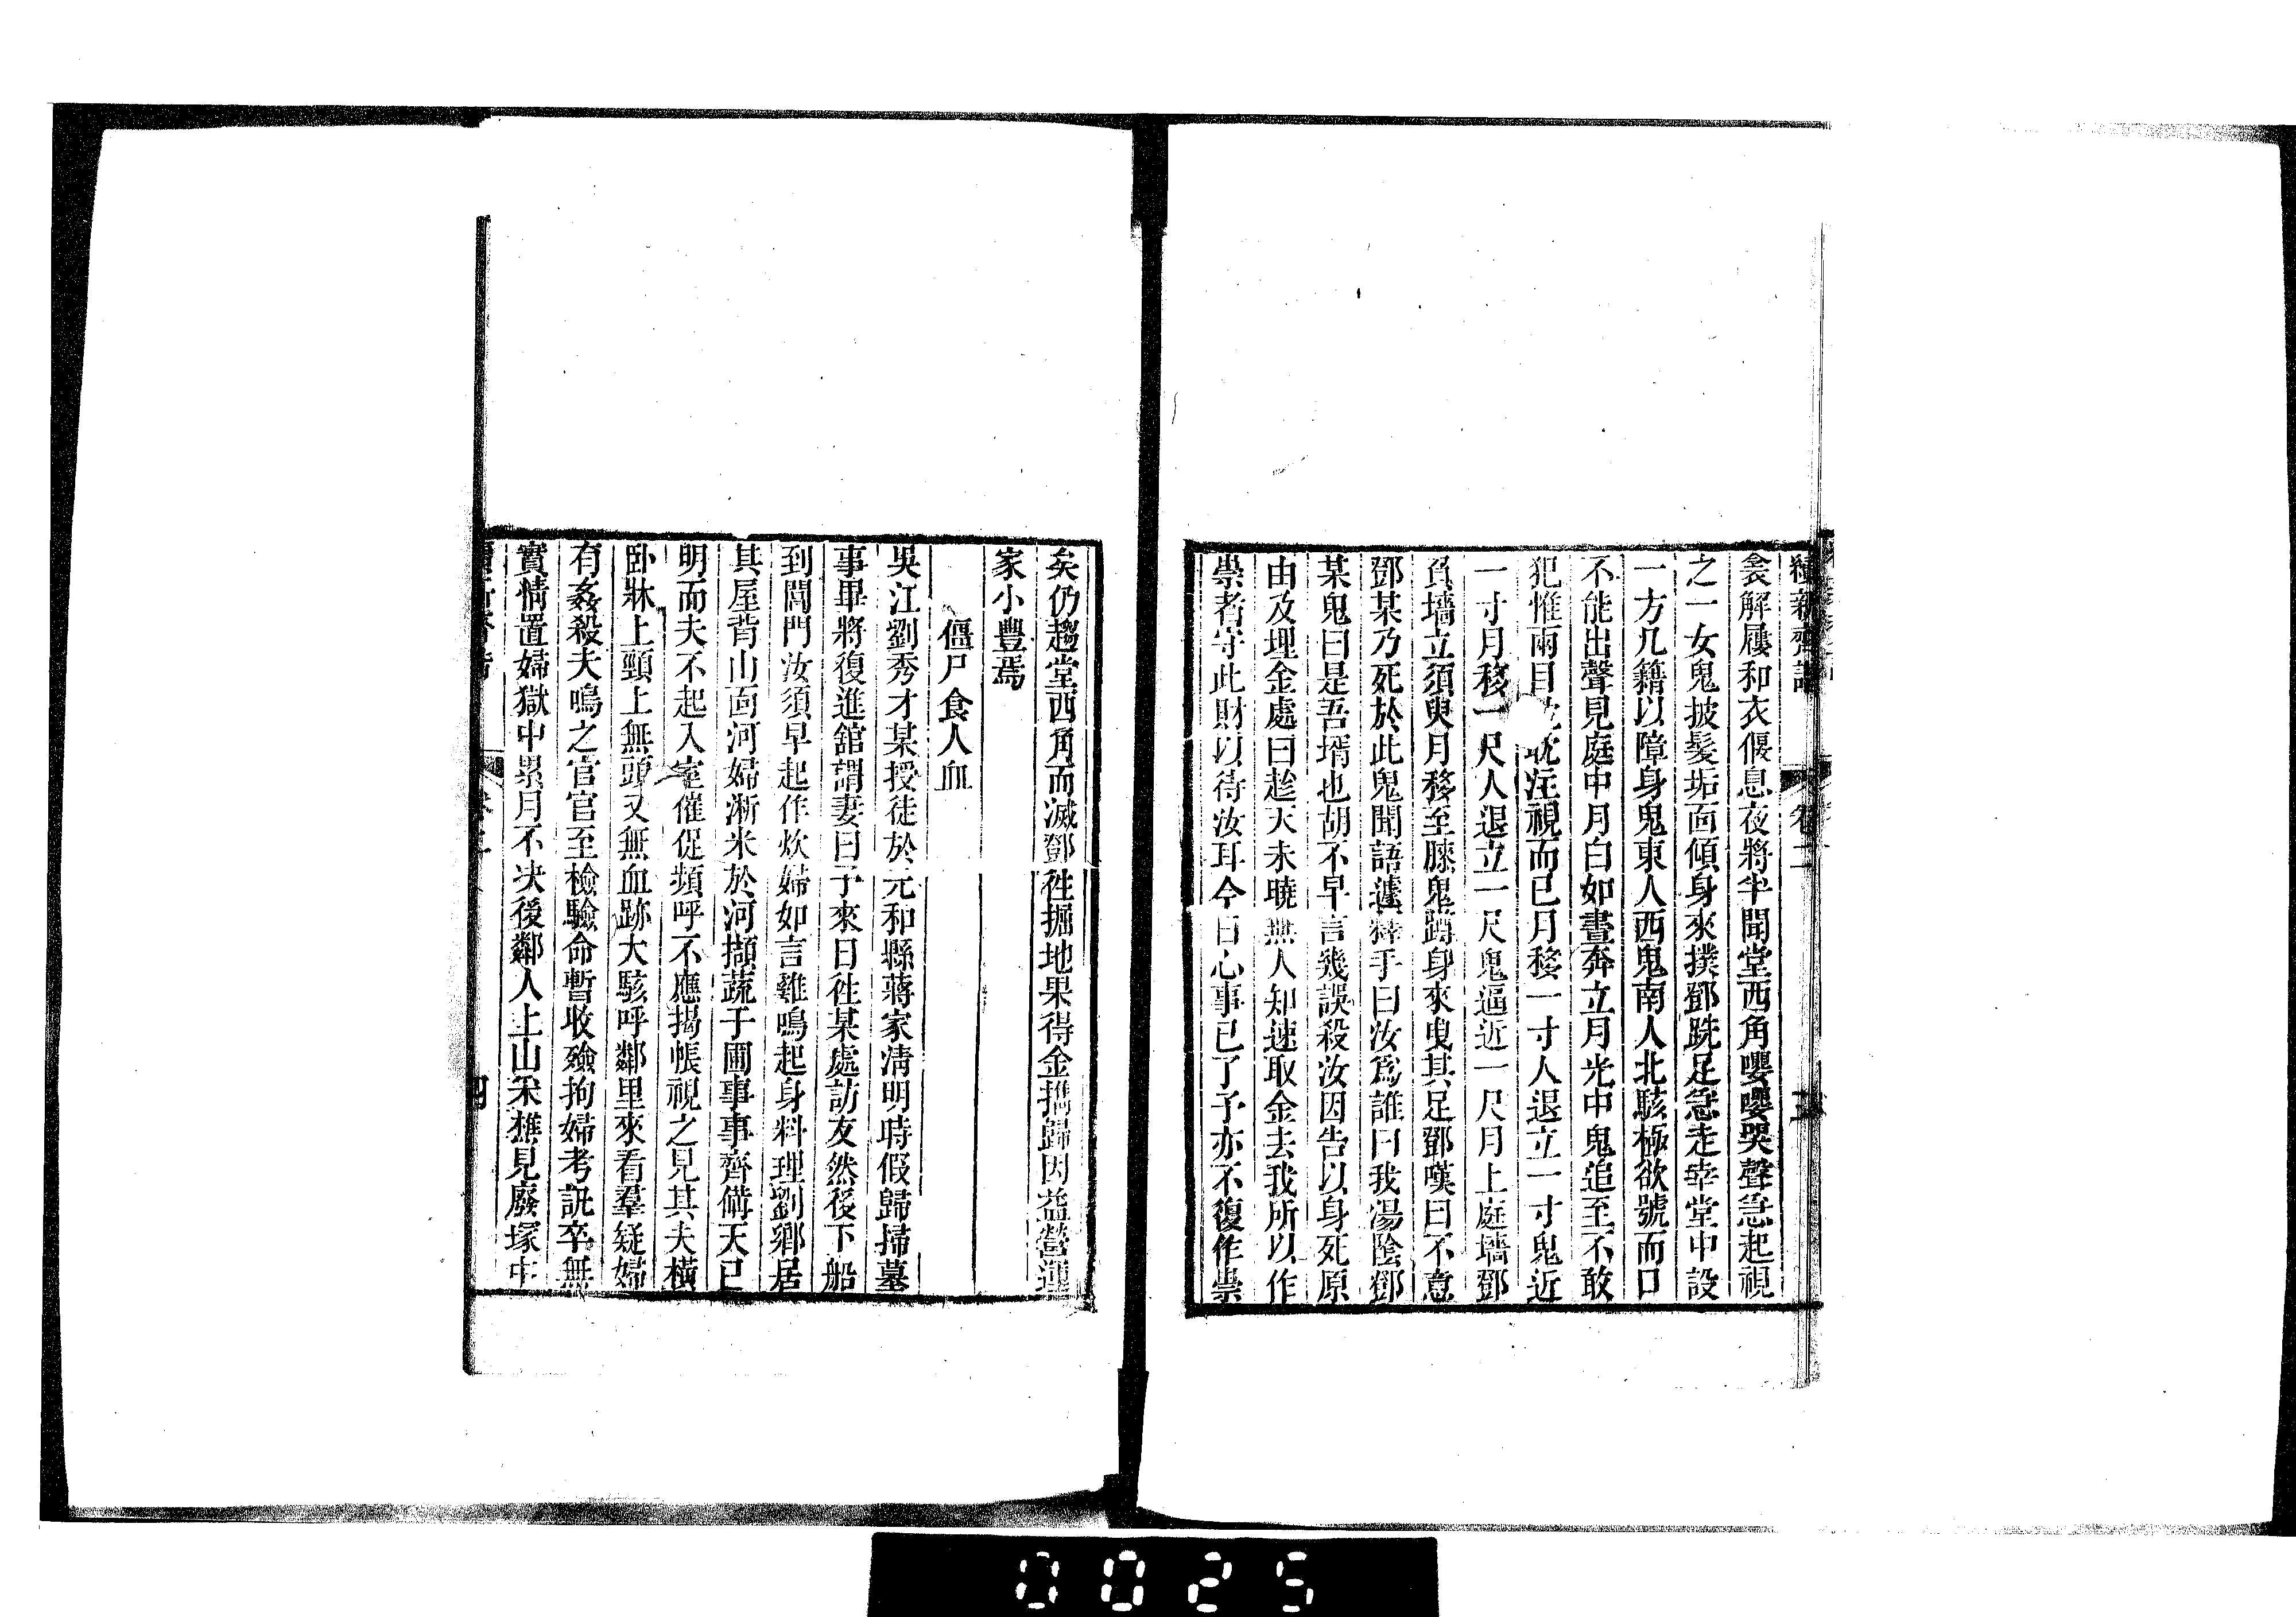 續新齊諧　卷二　三
衾解屨和衣偃息夜將半聞堂西角嚶嚶哭聲急起視
之一女鬼披髮垢面傾身來撲鄧跣足急走幸堂中設
一方几籍以障身鬼東人西鬼南人北駭極欲號而口
不能出聲見庭中月白如晝奔立月光中鬼追至不敢
犯惟兩目眈注視而已月移一寸人退立一寸鬼近
一寸月移一尺人退立一尺鬼逼近一尺月上庭墻鄧
負墻立須臾月移至膝鬼蹲身來曳其足鄧嘆曰不意
鄧某乃死於此鬼聞語遽釋手曰汝爲誰曰我湯陰鄧
某鬼曰是吾壻也胡不早言幾誤殺汝因告以身死原
由及埋金處曰趁天未曉無人知速取金去我所以作
祟者守此財以待汝耳今日心事已了予亦不復作祟
矣仍趨堂西角而滅鄧徃掘地果得金攜歸因益營運
家小豐焉
僵尸食人血
吳江劉秀才某授徒於元和縣蔣家清明時假歸掃墓
事畢將復進舘謂妻曰予來日徃某處訪友然後下船
到閶門汝須早起作炊婦如言雞鳴起身料理劉鄉居
其屋背山面河婦淅米於河擷蔬于圃事事齊備天已
明而夫不起入室催促頻呼不應揭帳視之見其夫橫
卧牀上頸上無頭又無血跡大駭呼鄰里來看羣疑婦
有姦殺夫鳴之官官至檢驗命暫收殮拘婦考訊卒無
實情置婦獄中累月不决後鄰人上山采樵見廢塚中
四
0025